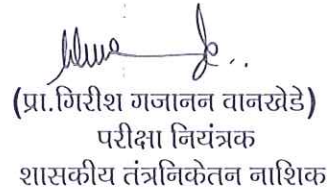 (प्रा.गिरीश गजानन वानखेडे)
परीक्षा नियंत्रक
शासकीय तंत्रनिकेतन नाशिक